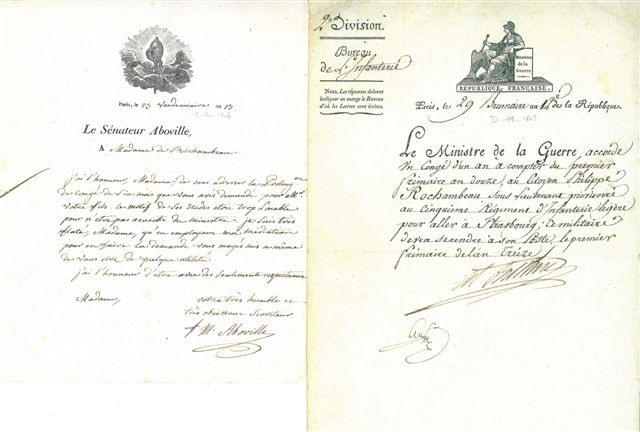 Paris, le 23 Vendemiaire an 13
Le Sénateur Aboville,
A Madame de Rochambeau
j'ai l'honneur, Madame, de vous adresser la Prolong on
de Congé de Six mois que vous avez demandé pour Mr.
votre fils. le motif de ses études etoit trop louable
pour n'etre pas accueilli du ministre je suis très
flaté, Madame, qu'en employant ma médiation
pour en faire la demande vous m'ayez mis a même
de vous etre de quelque utilité
j'ai l'honneur d'être avec des sentiments respectueux
Madame,
votre très humble et
très obeissant Serviteur
M. Aboville
2e Division.
Bureau
de L'Infanterie
Nota. Les réponses doivent
indiquer en marge le Bureau
d'où les Lettres sont écrites.
Ministre
de la
Guerre
RÉPUBLIQUE FRANÇAISE.
Paris, le 29 Brumaire an 12e de la République.
Le Ministre de la Guerre, accorde
un Congé d'un an à compter du premier
frimaire an douze, au Citoyen Philippe
Rochambeau Sous Lieutenant provisoire
au Cinquième Régiment d'Infanterie légère
pour aller à Strasbourg; Ce militaire
devra se rendre à son Poste, le premier
frimaire de l'an Treize.